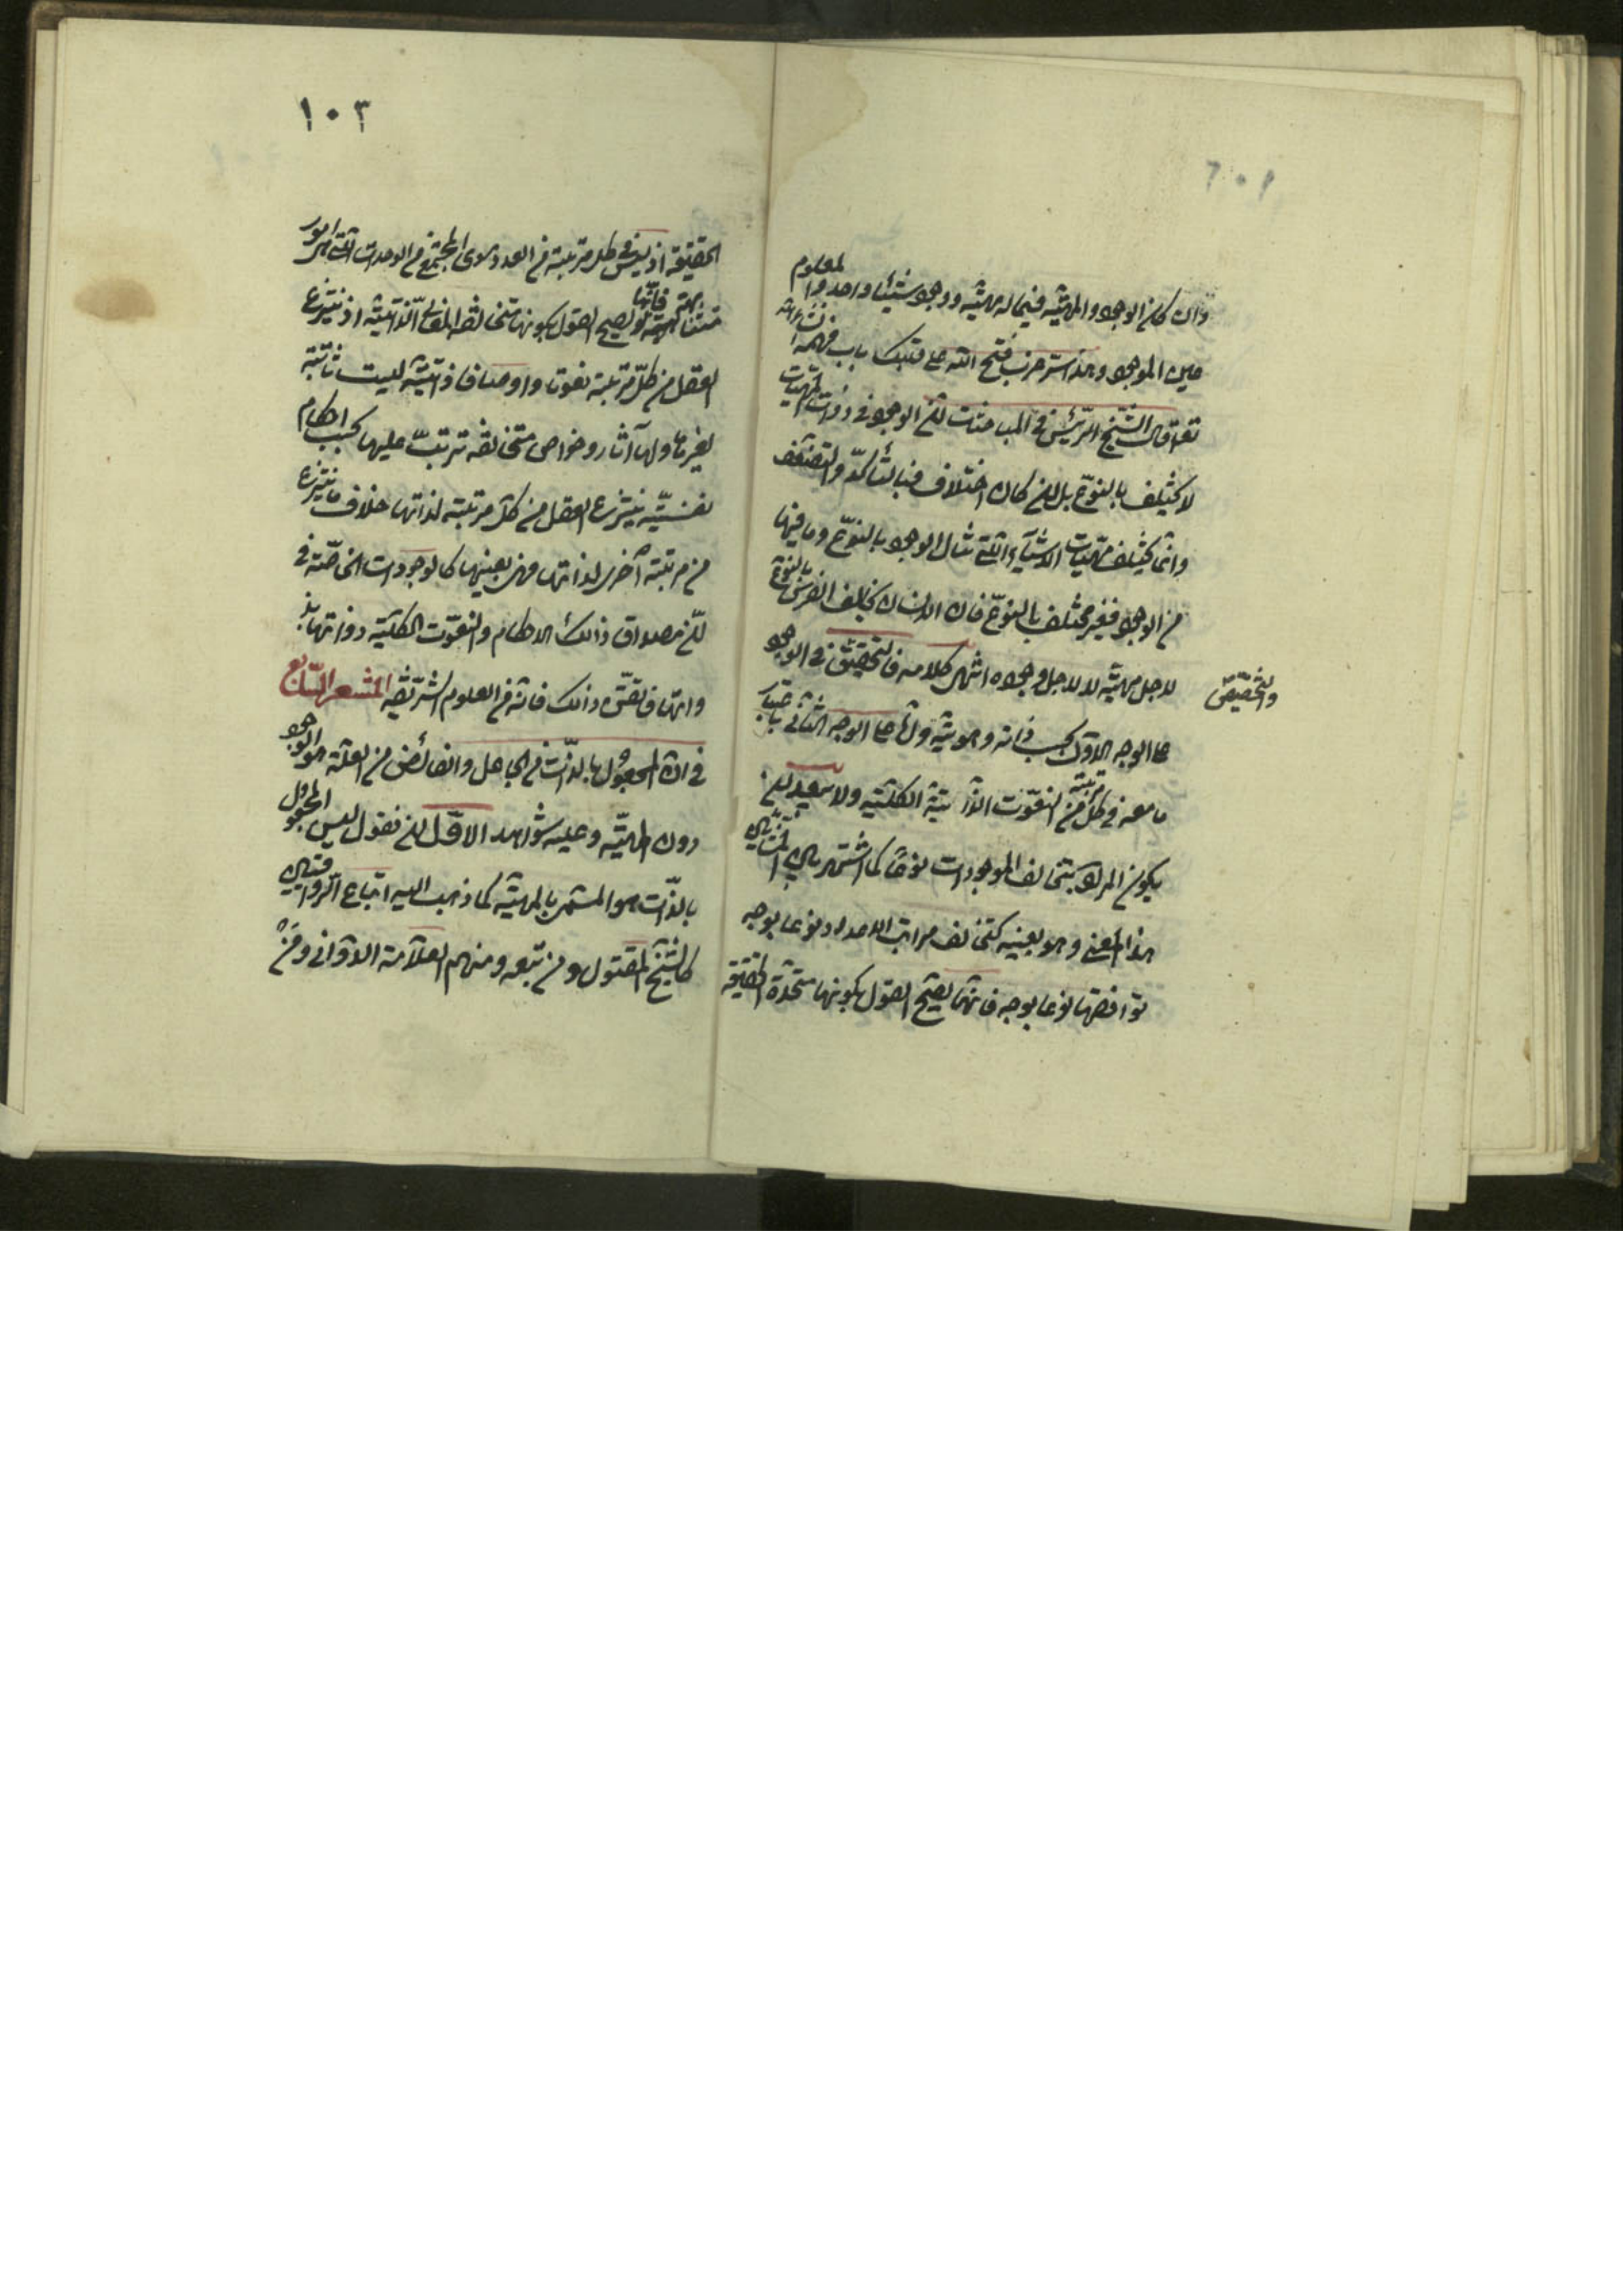 وان كان الوجود والمهيّة فيما له مهيّة ووجود شيئا واحدا والمعلوم
عين الموجود وهذا سرّ غريب فتح الله على قلبك باب فهمه انشاء الله
تعالى قال الشيخ الرئيس في المباحثات ان الوجود في ذوات المهيات
لا يختلف بالنوع بل ان كان اختلاف فبالتأكّد والتضعّف
وانما يختلف مهيّات الاشياء التي تنال الوجود بالنوع وما فيها
من الوجود فغير مختلف بالنوع فان الانسان يخالف الفرس بالنوع
لاجل مهيّته لا لاجل وجوده انتهى كلامه فالتحقيق في الوجود
والتخصيص
على الوجه الاول بحسب ذاته وهويته واما على الوجه الثاني باعتبار
ما معه في كل مرتبة من النعوت الذاتية الكلية ولا يبعد ان
يكون المراد بتخالف الموجودات نوعا كما اشتهر من المشائين
هذا المعنى وهو بعينه كتخالف مراتب الاعداد نوعا بوجه
توافقها نوعا بوجه فانها يصحّ القول بكونها متحدة الحقيقة
١٠٣
الحقيقة اذ ليس في كل مرتبة من العدد سوى المجتمع من الوحدات التي هي امور
متشابهة فانها يصح القول بكونها متخالفة المعاني الذاتية اذ ينتزع
العقل من كلّ مرتبة نعوتا واوصافا ذاتية ليست ثابتة
لغيرها ولها آثار وخواص متخالفة تترتب عليها بحسب احكام
نفسيّة ينتزع العقل من كل مرتبة لذاتها خلاف ما ينتزع
من مرتبة أخرى لذاتها فهى بعينها كالوجودات الخاصّة في
انّ مصداق ذلك الاحكام والنعوت الكلّية ذواتها بذ
واتها فاتقن ذلك فانه من العلوم الشريفه المشعر السابع
في ان المجعول بالذّات من الجاعل والفائض من العلّة هو الوجود
دون المهيّة وعليه شواهد الاوّل ان نقول ليس المجعول
بالذّات هو المسمى بالمهيّة كما ذهب اليه اتباع الرواقيين
كالشيخ المقتول ومن تبعه ومنهم العلّامة الدوّاني ومن